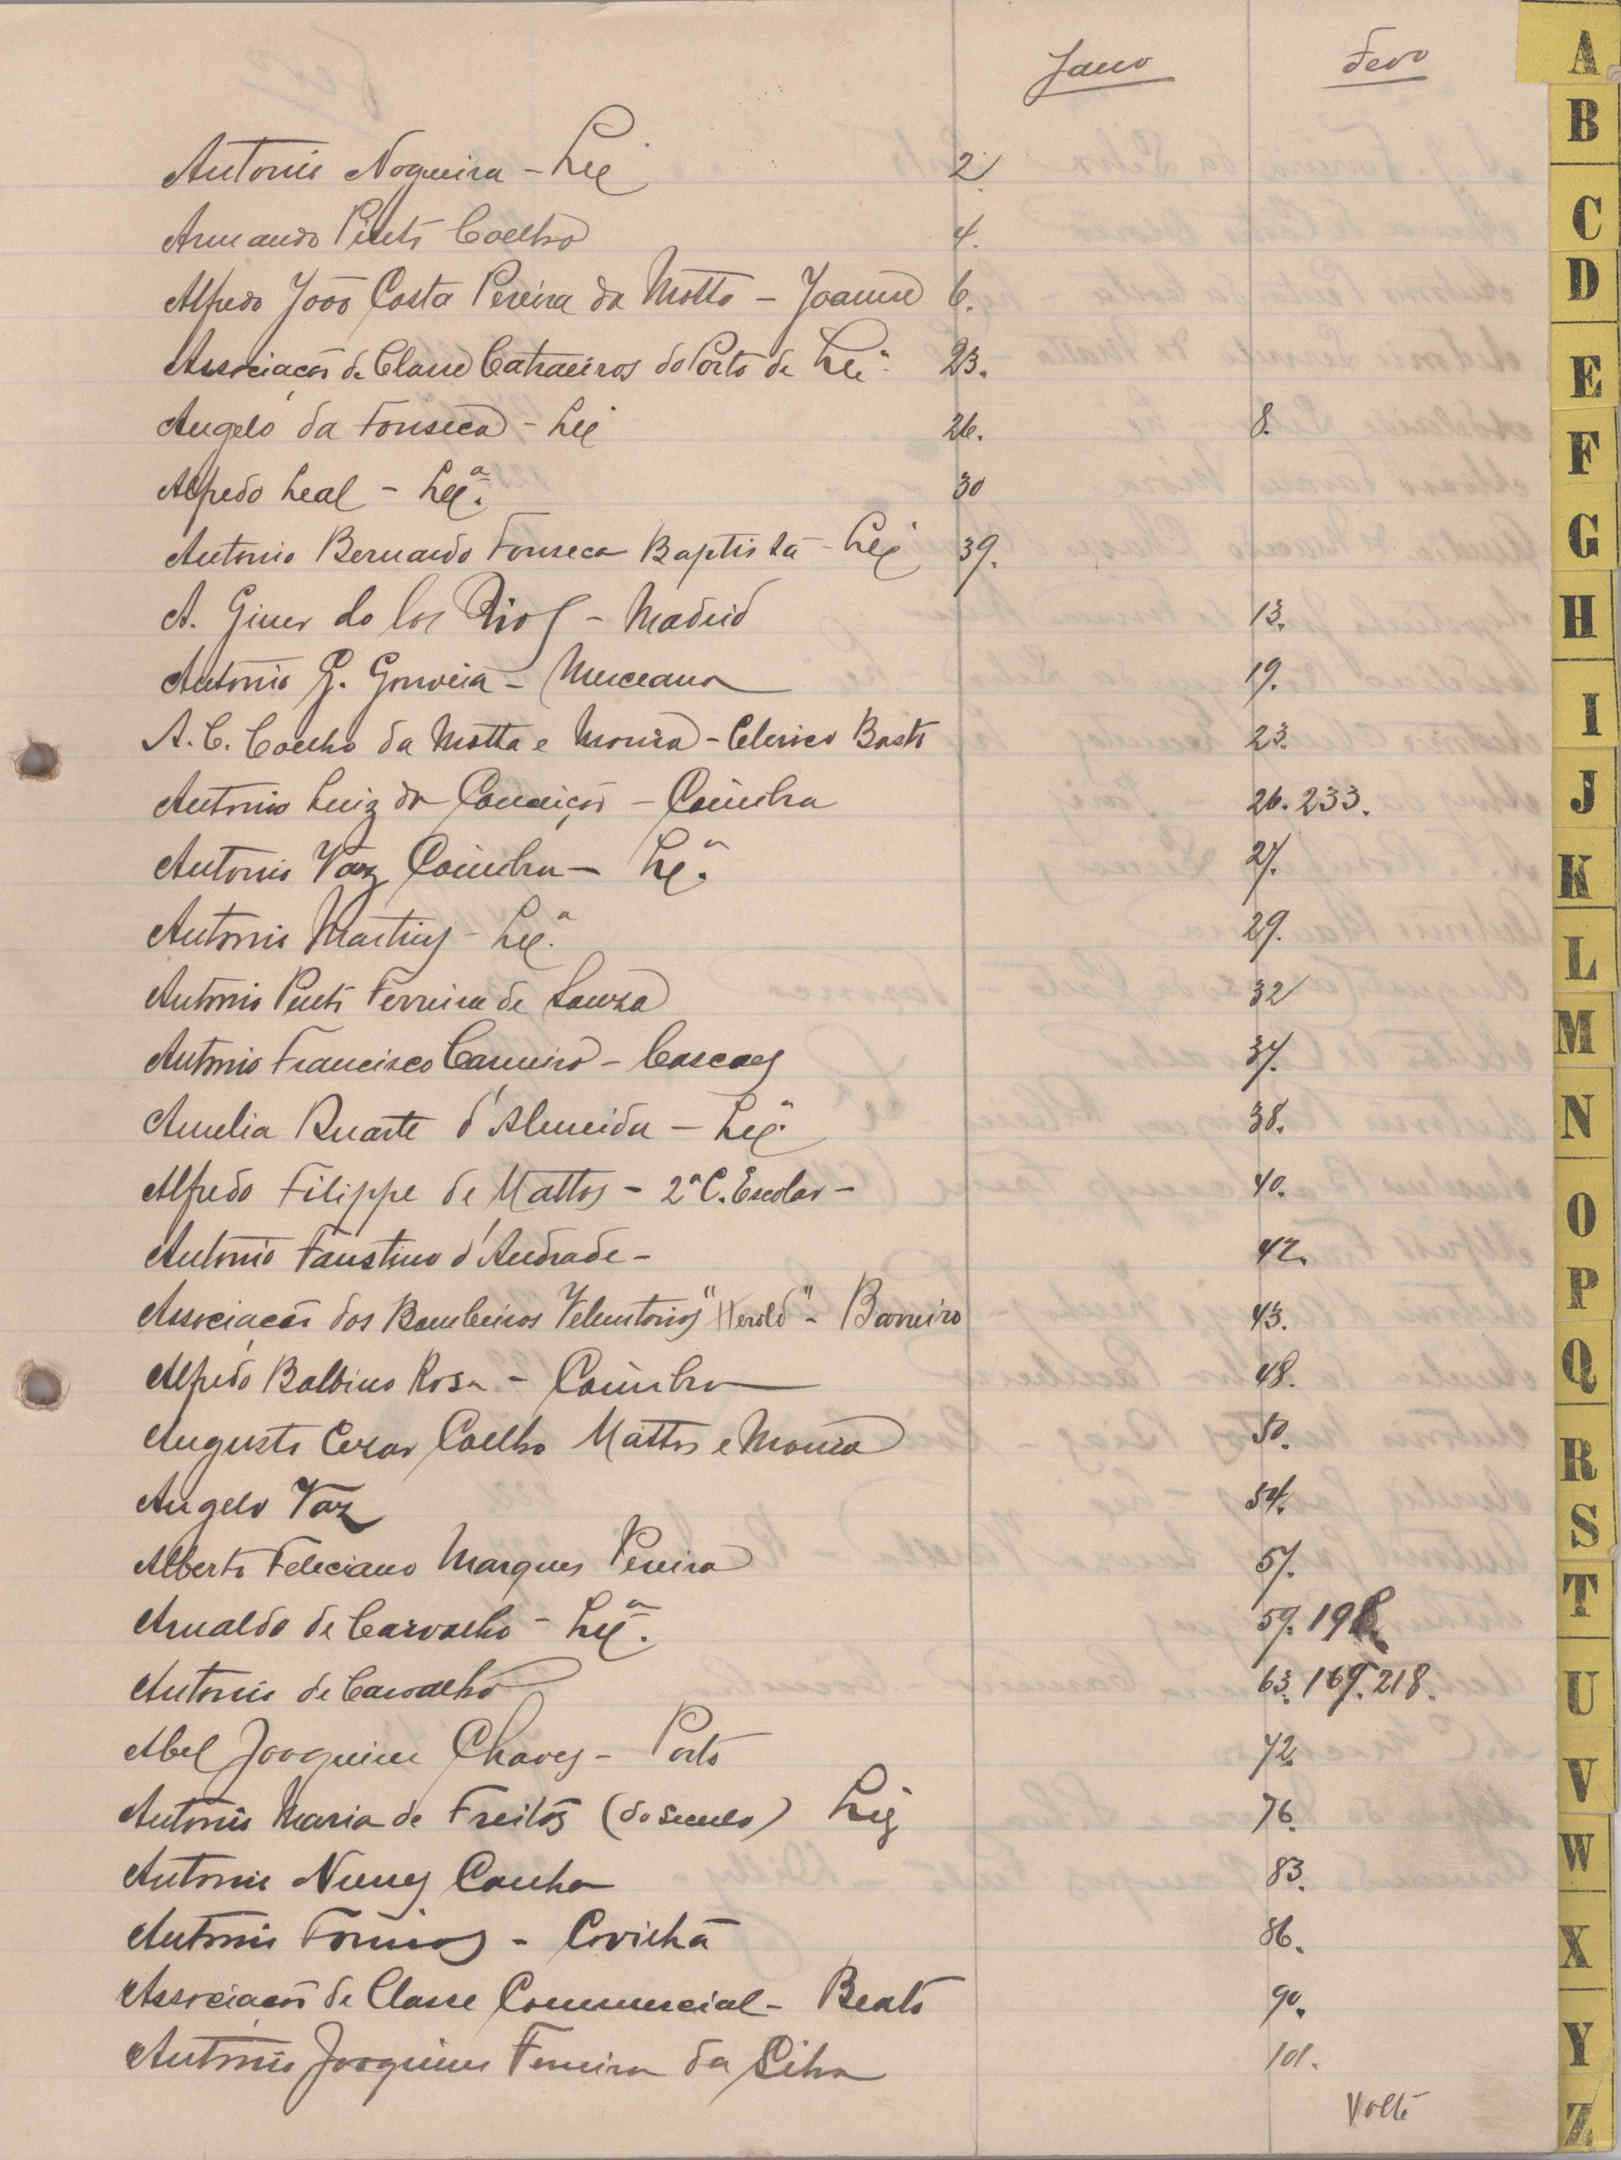 Janro Fevo
Antonio Nogueira - Lxa 2.
Armando Pinto Coelho 4.
Alfredo João Costa Pereira da Motta - Joanne 6.
Associação de Classe Catraeiros do Porto de Lxa 23.
Angelo da Fonseca - Lxa 26. 8.
Alfredo Leal - Lxa. 30
Antonio Bernardo Fonseca Baptista - Lxa 39.
A. Giner de los Rios - Madrid 13.
Antonio G. Gouveia - Merceana 19.
A. C. Coelho da Motta e Moura - Celorico Basto 23.
Antonio Luiz da Conceição - Coimbra 26. 233.
Antonio Vaz Coimbra - Lxa. 27.
Antonio Martins - Lxa. 29.
Antonio Pinto Ferreira de Souza 32
Antonio Francisco Carneiro - Cascaes 37.
Amelia Duarte d'Almeida - Lxa. 38.
Alfredo Filippe de Mattos - 2ª C. Escolar - 40.
Antonio Faustino d'Andrade - 42.
Associação dos Bombeiros Voluntarios "Herold" - Barreiro 43.
Alfredo Balbino Rosa - Coimbra 48.
Augusto Cezar Coelho Mattos e Moura 50.
Angelo Vaz 54.
Alberto Feleciano Marques Pereira 57.
Arnaldo de Carvalho - Lxa. 59. 198.
Antonio de Carvalho 63. 169. 218.
Abel Joaquim Chaves - Porto 72.
Antonio Maria de Freitas (do Seculo) Lxa 76.
Antonio Nunes Canha 83.
Antonio - Covilhã 86.
Associação de Classe Commercial - Beato 90.
Antonio Joaquim Ferreira da Silva 101.
Volte
A
B
C
D
E
F
G
H
I
J
K
L
M
N
O
P
Q
R
S
T
U
V
W
X
Y
Z